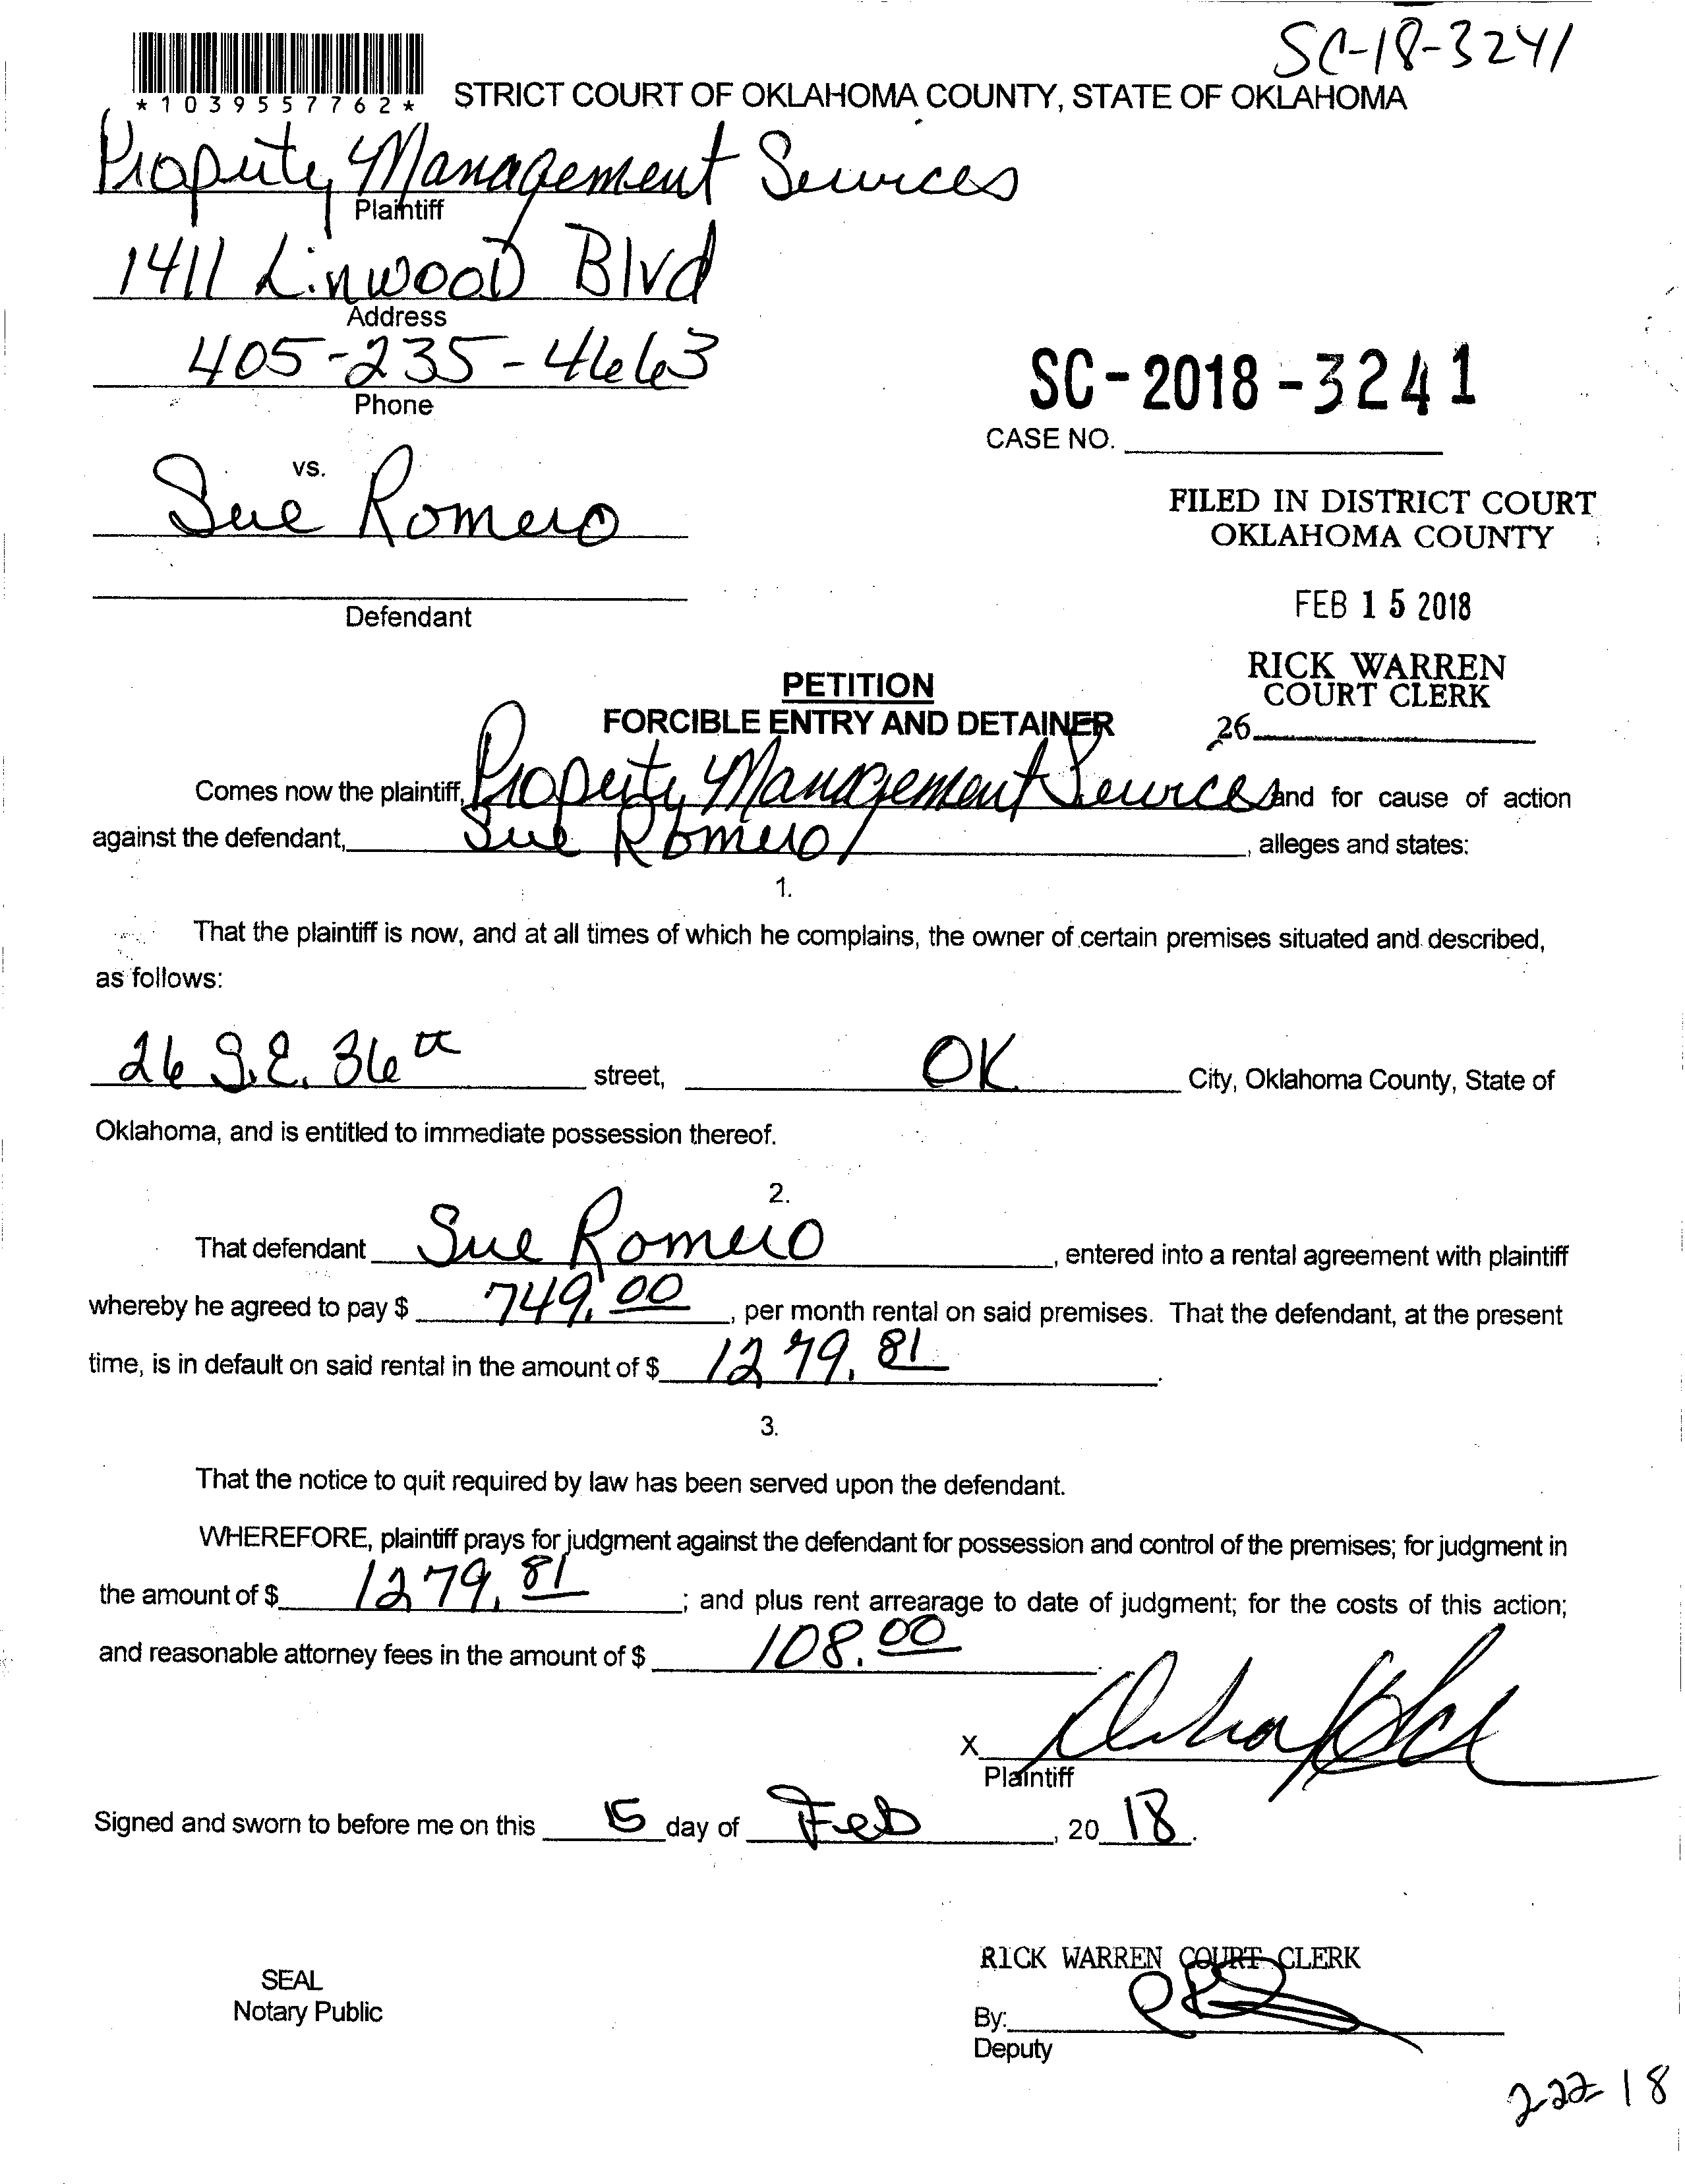 SC-18-3241
*1039557762*
STRICT COURT OF OKLAHOMA COUNTY, STATE OF OKLAHOMA
Property Management Services
Plaintiff
1411 Linwood Blvd
Address
405-235-4663
Phone
SC-2018-3241
CASE NO.
vs.
Sue Romero
FILED IN DISTRICT COURT
OKLAHOMA COUNTY
Defendant
FEB 15 2018
RICK WARREN
COURT CLERK
26
PETITION
FORCIBLE ENTRY AND DETAINER
Comes now the plaintiff, Property Management Services and for cause of action
against the defendant, Sue Romero, alleges and states:
1.
That the plaintiff is now, and at all times of which he complains, the owner of certain premises situated and described,
as follows:
26 S.E. 36th street, OK City, Oklahoma County, State of
Oklahoma, and is entitled to immediate possession thereof.
2.
That defendant Sue Romero, entered into a rental agreement with plaintiff
whereby he agreed to pay $ 749.00, per month rental on said premises. That the defendant, at the present
time, is in default on said rental in the amount of $ 1279.81.
3.
That the notice to quit required by law has been served upon the defendant.
WHEREFORE, plaintiff prays for judgment against the defendant for possession and control of the premises; for judgment in
the amount of $ 1279.81; and plus rent arrearage to date of judgment; for the costs of this action;
and reasonable attorney fees in the amount of $ 108.00
X
Plaintiff
Signed and sworn to before me on this 15 day of Feb, 2018.
RICK WARREN COURT CLERK
SEAL
Notary Public
By:
Deputy
2-22-18